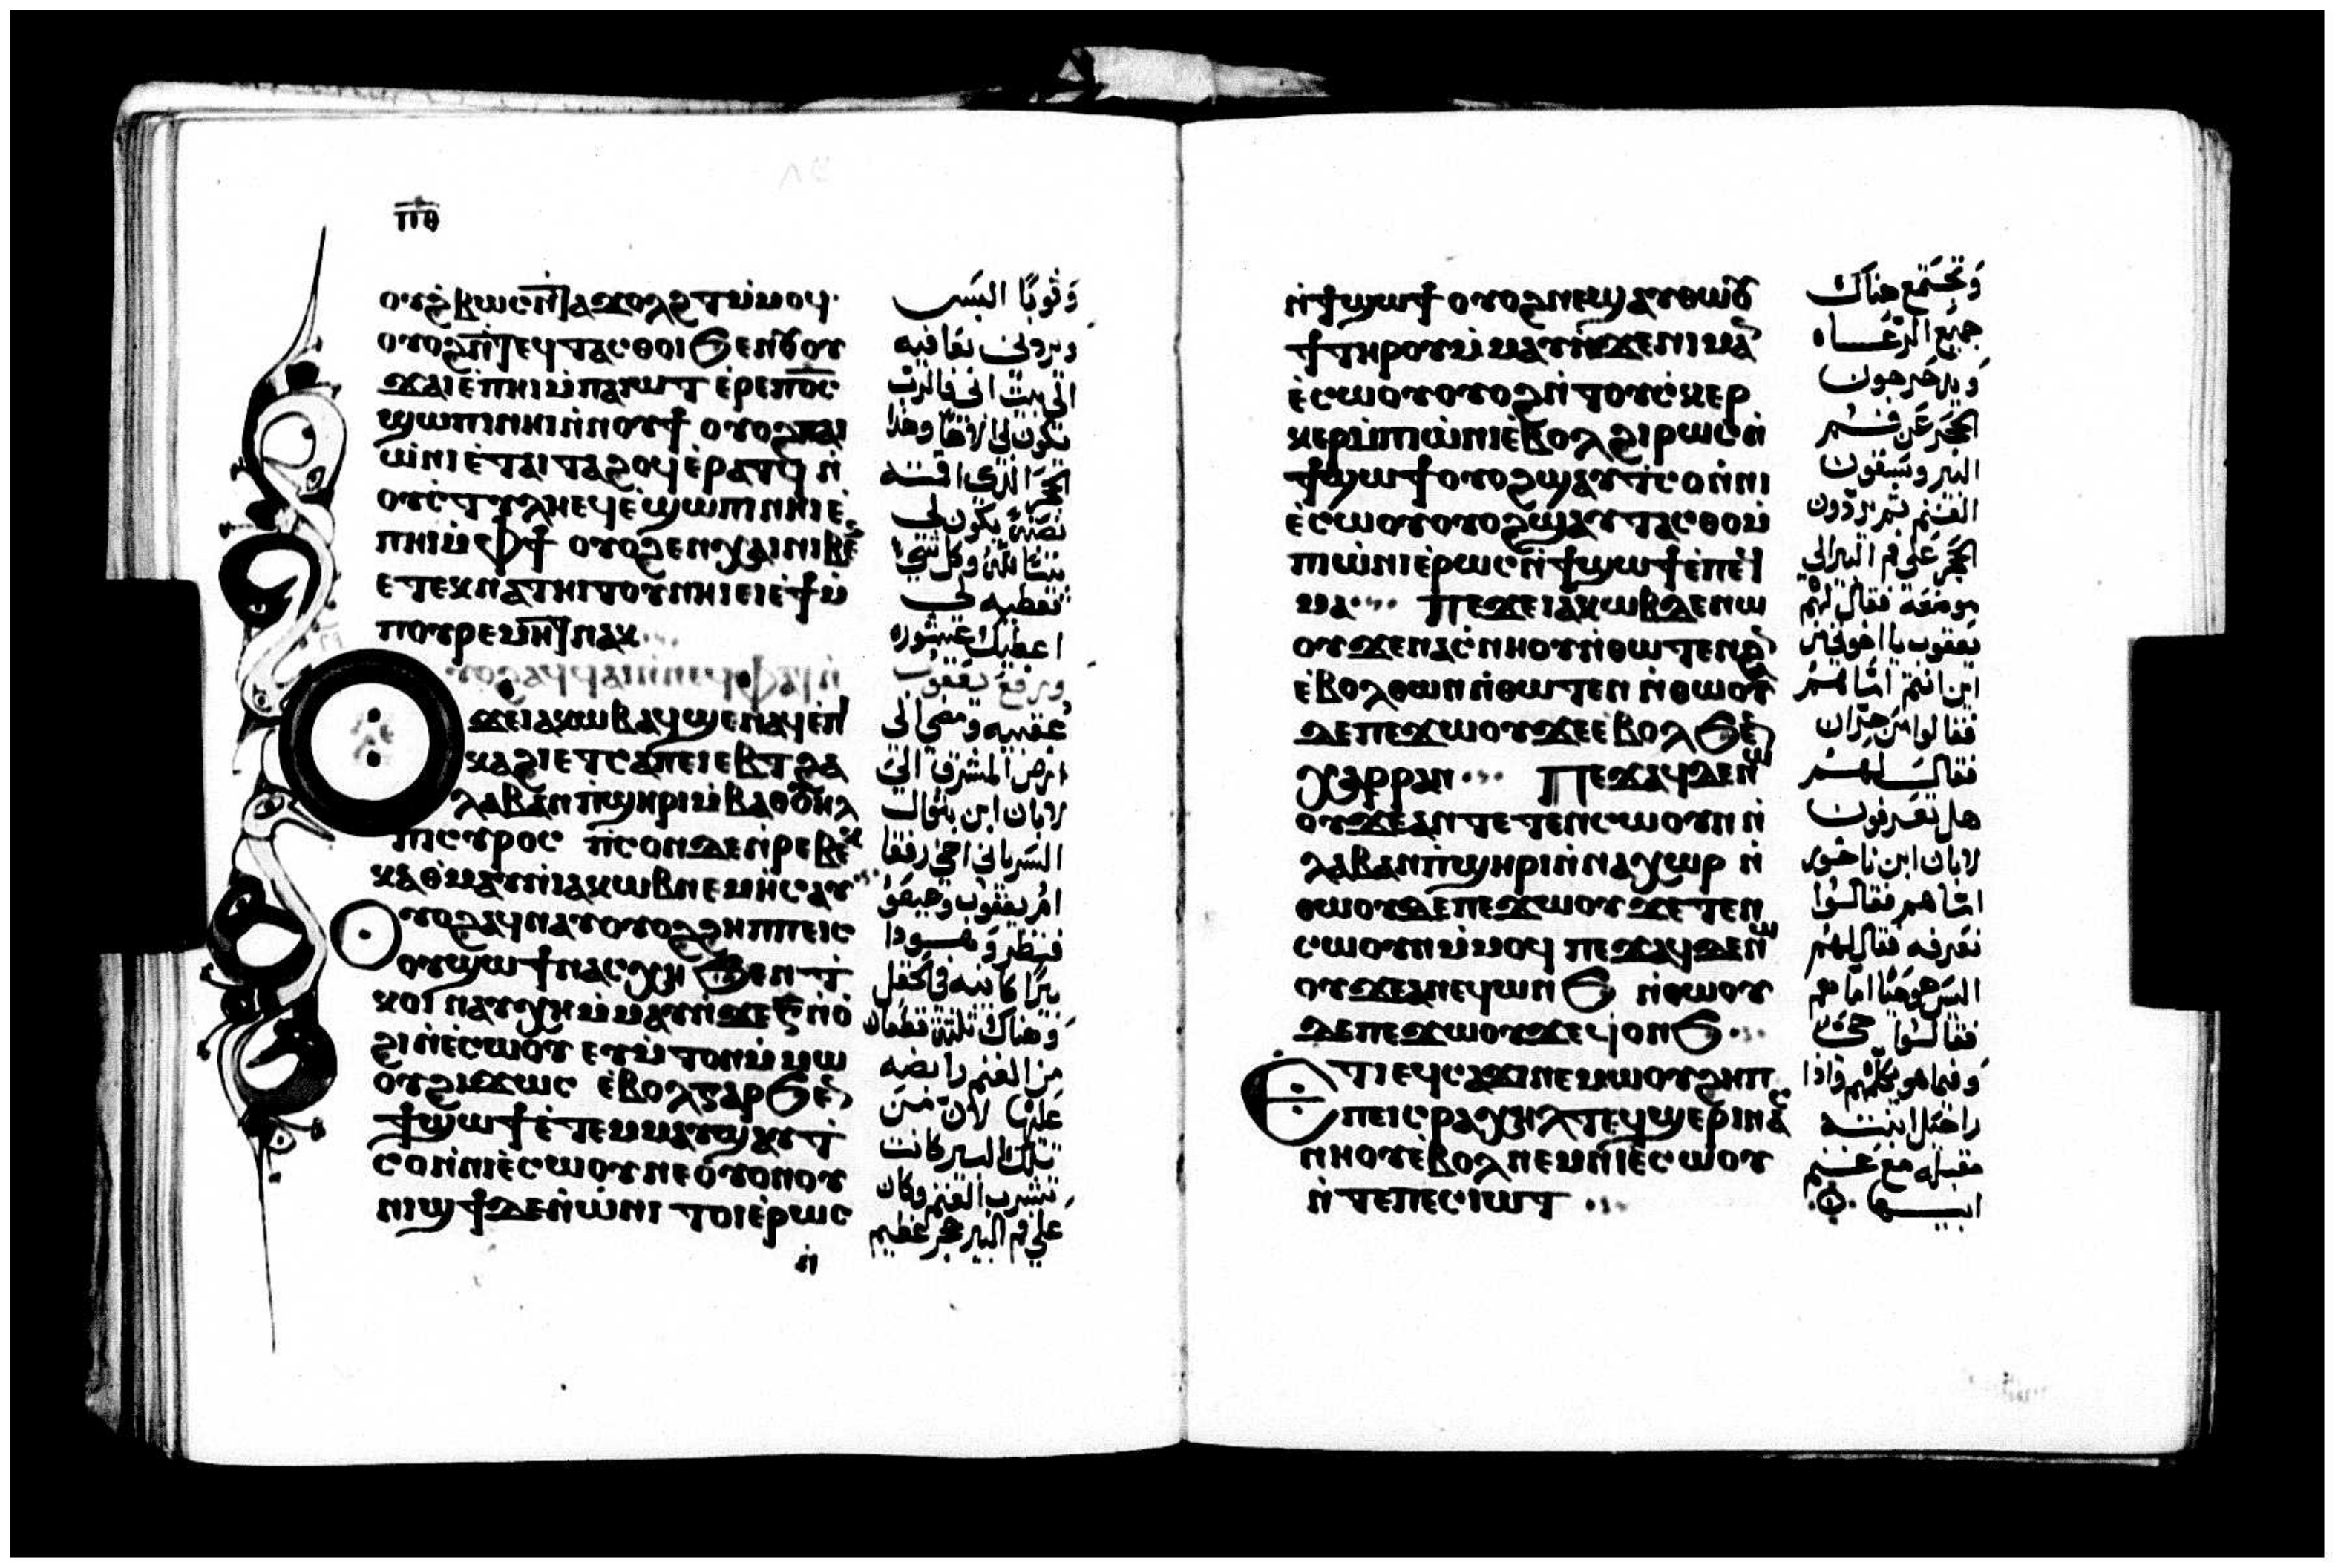 ⲡ̅ⲑ̅
ⲟⲩϩ̀ⲃⲱⲥⲛ̀ⲧⲁϫⲟⲗϩⲧⲙ̀ⲙⲟϥ·
ⲟⲩⲟϩⲛ̀ⲧⲉϥⲧⲁⲥⲑⲟⲓϧⲉⲛⲟⲩⲟⲩ
ϫⲁⲓⲉ̀ⲡⲏⲓⲙ̀ⲡⲁⲓⲱⲧ ⲉ̀ⲣⲉⲡⲟ̅ⲥ̅
ϣⲱⲡⲓⲛⲏⲓⲛ̀ⲛⲟⲩϯ ⲟⲩⲟϩⲡⲁⲓ
ⲱ̀ⲛⲓⲉ̀ⲧⲁⲓⲧⲁϩⲟϥⲉ̀ⲣⲁⲧϥ ⲛ̀
ⲟⲩⲥ̀ⲧⲩⲗⲏⲉϥⲉ̀ϣⲱⲡⲓⲛⲏⲓⲉ̀
ⲡⲏⲓⲙ̀ⲫϯ ⲟⲩⲟϩⲉⲛⲭⲁⲓⲛⲓⲃⲉ
ⲉⲧⲉⲕⲛⲁⲧⲏⲓⲧⲟⲩⲛⲏⲓⲉⲓⲉ̀ϯⲙ̀
ⲡⲟⲩⲣⲉⲙⲏⲧⲛⲁⲕ
ϫⲉⲓⲁⲕⲱⲃⲁϥϣⲉⲛⲁϥⲉ̀ⲡ
ⲕⲁϩⲓⲉⲧⲥⲁⲡⲉⲓⲉⲃⲧϩⲁ
ⲗⲁⲃⲁⲛⲡ̀ϣⲏⲣⲓⲙ̀ⲃⲁⲑⲟⲩⲏⲗ
ⲡⲓⲥⲩⲣⲟⲥ ⲡ̀ⲥⲟⲛⲇⲉⲛ̀ⲣⲉⲃⲉⲕ
ⲕⲁⲑⲙⲁⲩⲛ̀ⲓⲁⲕⲱⲃⲛⲉⲙⲏ̀ⲥⲁⲩ
ⲟⲩⲟϩⲁϥⲛⲁⲩⲟⲩⲟϩϩⲏⲡⲡⲉⲓⲥ
ⲟⲩϣⲱϯⲛⲁⲥⲭⲏ ϧⲉⲛⲧ̀
ⲕⲟⲓ ⲛⲁⲩⲭⲏⲙ̀ⲙⲁⲩⲛ̀ϫⲉⲅ̅ⲛ̀ⲟ̀
ϩⲓⲛ̀ⲉ̀ⲥⲱⲟⲩ ⲉⲩⲙ̀ⲧⲟⲛⲙ̀ⲙⲱ
ⲟⲩϩⲓϫⲱⲥ ⲉ̀ⲃⲟⲗⲅⲁⲣϧⲉⲛ
ϯϣⲱϯⲉ̀ⲧⲉⲙⲙⲁⲩϣⲁⲩⲧ̀
ⲥⲟⲛ̀ⲛⲓⲉ̀ⲥⲱⲟⲩⲛⲉⲟ̀ⲩⲟⲛⲟⲩ
ⲛⲓϣϯⲇⲉⲛ̀ⲱ̀ⲛⲓ ⲧⲟⲓⲉ̀ⲣⲱⲥ
ⲛ̀
وثوبًا البس
ويردني بعافيه
الى بيت ابى فالرب
يكون لى الاهًا وهذا
الحجر الذى اقمته
نصبة يكون لى
بيتًا لله وكل شى
تعطيه لى
اعطيك عشوره
ورفع يعقوب
عقبيه ومضى الى
ارض المشرق الى
لابان ابن بتوال
السريانى اخى رفقا
ام يعقوب وعيصو
فنظر وهودا
بيرًا كاينه فى الحقل
وهناك ثلثة قطعان
من الغنم رابضه
عليها لان من
تلك البير كانت
تشرب الغنم وكان
على فم البير حجر عظيم
ⲛ̀ϯϣⲱϯ ⲟⲩⲟϩⲛⲉϣⲁⲩⲑⲱⲟⲩ
ϯⲧⲏⲣⲟⲩⲙ̀ⲙⲁⲩⲛ̀ϫⲉⲛⲓⲙⲁⲛ
ⲉ̀ⲥⲱⲟⲩⲟⲩⲟϩⲛ̀ⲧⲟⲩⲥ̀ⲕⲉⲣ
ⲕⲉⲣⲙ̀ⲡⲓⲱ̀ⲛⲓⲉ̀ⲃⲟⲗϩⲓⲣⲱⲥⲛ̀
ϯϣⲱϯⲟⲩⲟϩϣⲁⲩⲧ̀ⲥⲟⲛ̀ⲛⲓ
ⲉ̀ⲥⲱⲟⲩⲟⲩⲟϩϣⲁⲩⲧⲁⲥⲑⲟⲙ̀
ⲡⲓⲱ̀ⲛⲓⲉ̀ⲣⲱⲥⲛ̀ϯϣⲱϯⲉ̀ⲡⲉϥ
ⲙⲁ ⲡⲉϫⲉⲓⲁⲕⲱⲃⲇⲉⲛⲱ
ⲟⲩϫⲉⲛⲁⲥ̀ⲛⲏⲟⲩⲛ̀ⲑⲱⲧⲉⲛϩⲁⲛ
ⲉ̀ⲃⲟⲗⲑⲱⲛⲛ̀ⲑⲱⲧⲉⲛ ⲛ̀ⲑⲱⲟⲩ
ⲇⲉⲡⲉϫⲱⲟⲩϫⲉⲉ̀ⲃⲟⲗϧⲉⲛ
ⲭⲁⲣⲣⲁⲛ ⲡⲉϫⲁϥⲇⲉⲛⲱ
ⲟⲩϫⲉⲁⲛⲧⲉⲧⲉⲛⲥⲱⲟⲩⲛⲛ̀
ⲗⲁⲃⲁⲛⲡ̀ϣⲏⲣⲓⲛ̀ⲛⲁⲭⲱⲣ ⲛ̀
ⲑⲱⲟⲩⲇⲉⲡⲉϫⲱⲟⲩ ϫⲉⲧⲉⲛ
ⲥⲱⲟⲩⲛⲙ̀ⲙⲟϥ ⲡⲉϫⲁϥⲇⲉⲛⲱ
ⲟⲩϫⲉⲁⲛⲉϥⲱⲛϧ ⲛ̀ⲑⲱⲟⲩ
ⲇⲉⲡⲉϫⲱⲟⲩϫⲉϥⲟⲛϧ
ⲉ̀ⲧⲓⲉϥⲥⲁϫⲓⲛⲉⲙⲱⲟⲩϩⲏⲡ
ⲡⲉⲓⲥⲣⲁⲭⲏⲗⲧ̀ϣⲉⲣⲓⲛⲁⲥ
ⲛⲏⲟⲩⲉ̀ⲃⲟⲗⲛⲉⲙⲛⲓⲉ̀ⲥⲱⲟⲩ
ⲛ̀ⲧⲉⲡⲉⲥⲓⲱⲧ
وتجتمع هناك
جميع الرعاه
ويدحرجون
الحجر عن فم
البير ويسقون
الغنم ثم يردون
الحجر على فم البير الى
موضعه فقال لهم
يعقوب يا اخوتى من
اين انتم امّا هم
فقالوا من حرّان
فقال لهم
هل تعرفون
لابان ابن ناحور
امّا هم فقالوا
نعرفه فقال لهم
اليس هو حيًا اما هم
فقالوا حى
وفيما هو يكلمهم واذا
راحيل ابنته
مقبله مع غنم
ابيها